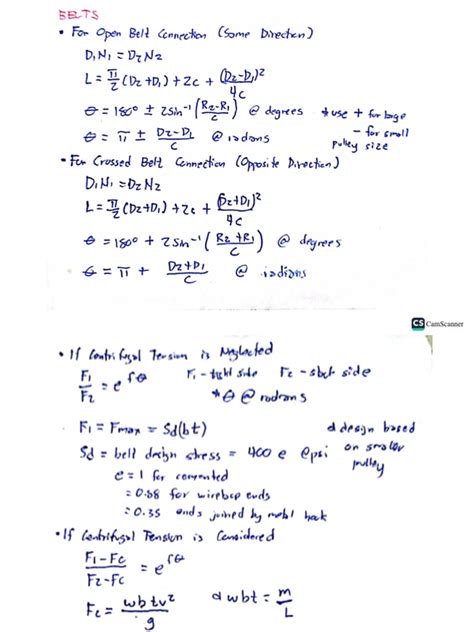 BELTS
• For Open Belt Connection (Same Direction)
D₁N₁ = D₂N₂
L = π/2 (D₂+D₁) + 2C + (D₂-D₁)²/4C
θ = 180° ± 2sin⁻¹ ((R₂-R₁)/C) @ degrees *use + for large
θ = π ± (D₂-D₁)/C @ radians - for small pulley size
• For Crossed Belt Connection (Opposite Direction)
D₁N₁ = D₂N₂
L = π/2 (D₂+D₁) + 2C + (D₂+D₁)²/4C
θ = 180° + 2sin⁻¹ ((R₂+R₁)/C) @ degrees
θ = π + (D₂+D₁)/C @ radians
CS CamScanner
• If Centrifugal Tension is Neglected
F₁/F₂ = e^fθ F₁ - tight side F₂ - slack side
*θ @ radians
F₁ = Fmax = Sd(bt) design based
Sd = belt design stress = 400 e @psi on smaller
e = 1 for cemented pulley
= 0.88 for wirelace ends
= 0.35 ends joined by metal hook
• If Centrifugal Tension is Considered
(F₁-Fc)/(F₂-Fc) = e^fθ
Fc = wbtv²/g wbt = m/L